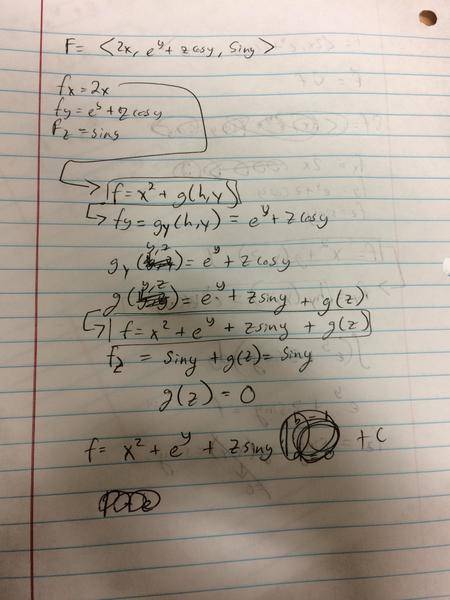 F = < 2x, e^y + z cosy, Siny >
fx = 2x
fy = e^y + z cosy
fz = siny
f = x^2 + g(h,y)
fy = gy(h,y) = e^y + z cosy
gy(y,z) = e^y + z cosy
g(y,z) = e^y + z siny + g(z)
f = x^2 + e^y + z siny + g(z)
fz = Siny + g(z) = Siny
g(z) = 0
f = x^2 + e^y + z siny + C